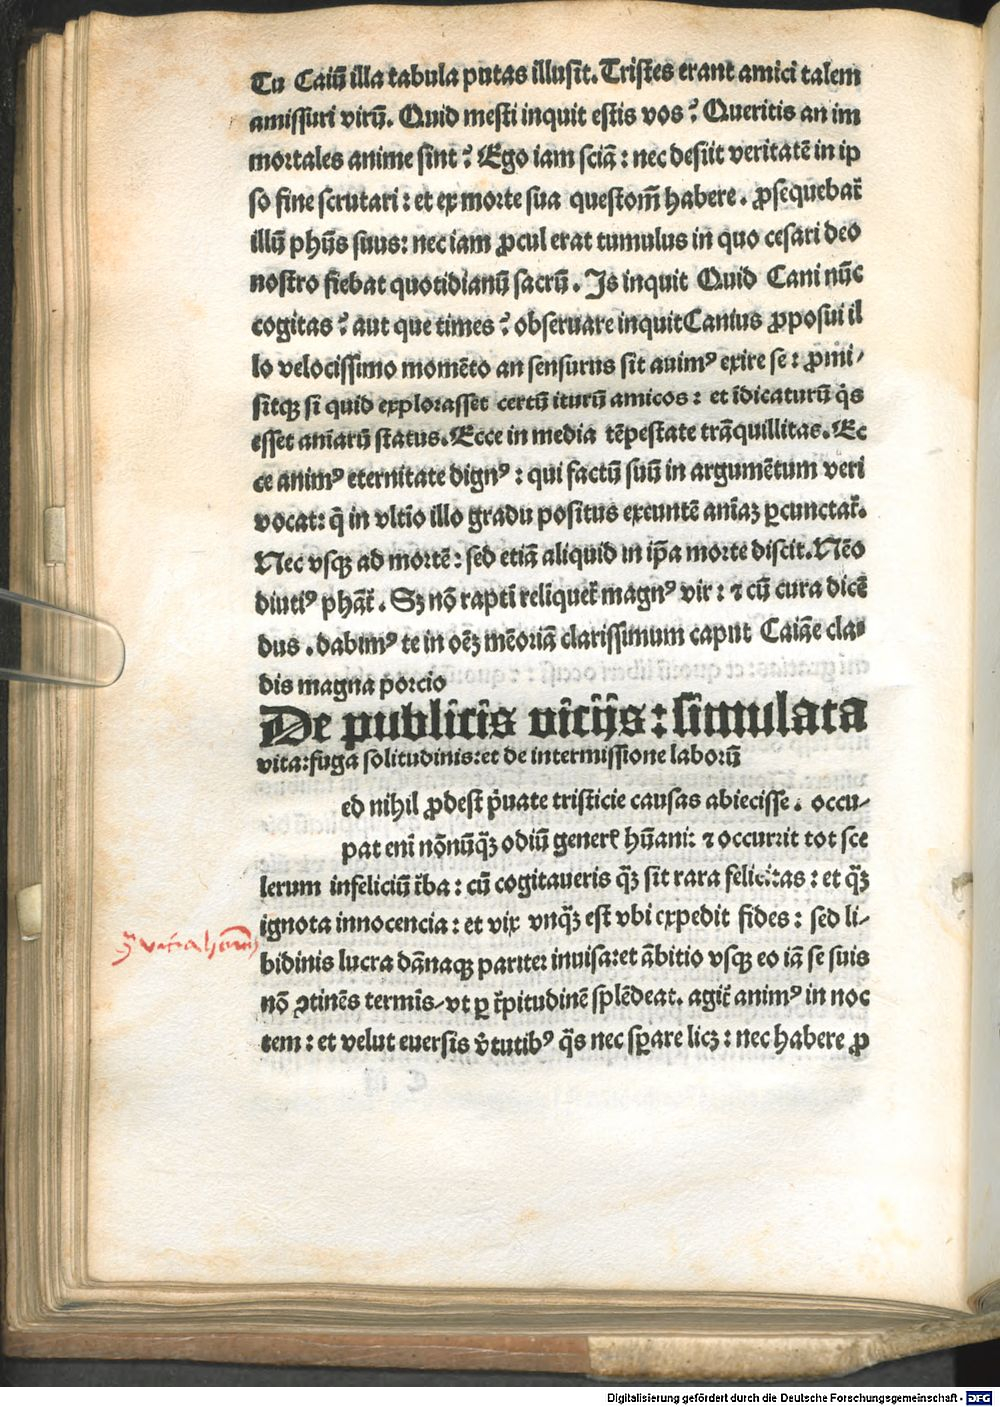 Tu Caiū illa tabula putas illusit. Tristes erant amici talem
amissuri virū. Quid mesti inquit estis vos? Queritis an im
mortales anime sint? Ego iam sciā: nec desiit veritatē in ip
so fine scrutari: et ex morte sua questom̄ habere. ꝓsequebat᷑
illū phūs suus: nec iam ꝓcul erat tumulus in quo cesari deo
nostro fiebat quotidianū sacrū. Is inquit Quid Cani nūc
cogitas? aut que times? obseruare inquit Canius ꝓposui il
lo velocissimo momēto an sensurus sit animꝰ exire se: ꝓmi/
sitqꝫ si quid explorasset certū iturū amicos: et īdicaturū q̄s
esset aniarū status. Ecce in media tēpestate trāquillitas. Ec
ce animꝰ eternitate dignꝰ: qui factū suū in argumētum veri
vocat: q̄ in vltīo illo gradu positus exeuntē aniāꝫ ꝑcunctat᷑.
Nec vsqꝫ ad mortē: sed etiā aliquid in ip̄a morte discit. Nēo
diutiꝰ phāt᷑. Sꝫ nō raptī relinquet᷑ magnꝰ vir: ⁊ cū cura dicē
dus. dabimꝰ te in oēꝫ mēoriā clarissimum caput Caiāe cla⸗
dis magna porcio
De publicis vicijs: simulata
vita: fuga solitudinis: et de intermissione laborū
ed nihil ꝓdest p̄uate tristicie causas abiecisse. occu⸗
pat enī nōnūqꝫ odiū generꝭ hūani: ⁊ occurrit tot sce
lerum infeliciū t᷑ba: cū cogitaueris qꝫ sit rara felicitas: et qꝫ
ignota innocencia: et vix vnqꝫ est vbi expedit fides: sed li⸗
bidinis lucra dānaqꝫ pariter inuisa: et ābitio vsqꝫ eo iā se suis
nō ꝯtinēs termīs/ vt ꝑ t᷑pitudinē splēdeat. agit᷑ animꝰ in noc
tem: et velut euersis v̄tutibꝰ q̄s nec sꝑare licꝫ: nec habere ꝓ
Digitalisierung gefördert durch die Deutsche Forschungsgemeinschaft - DFG